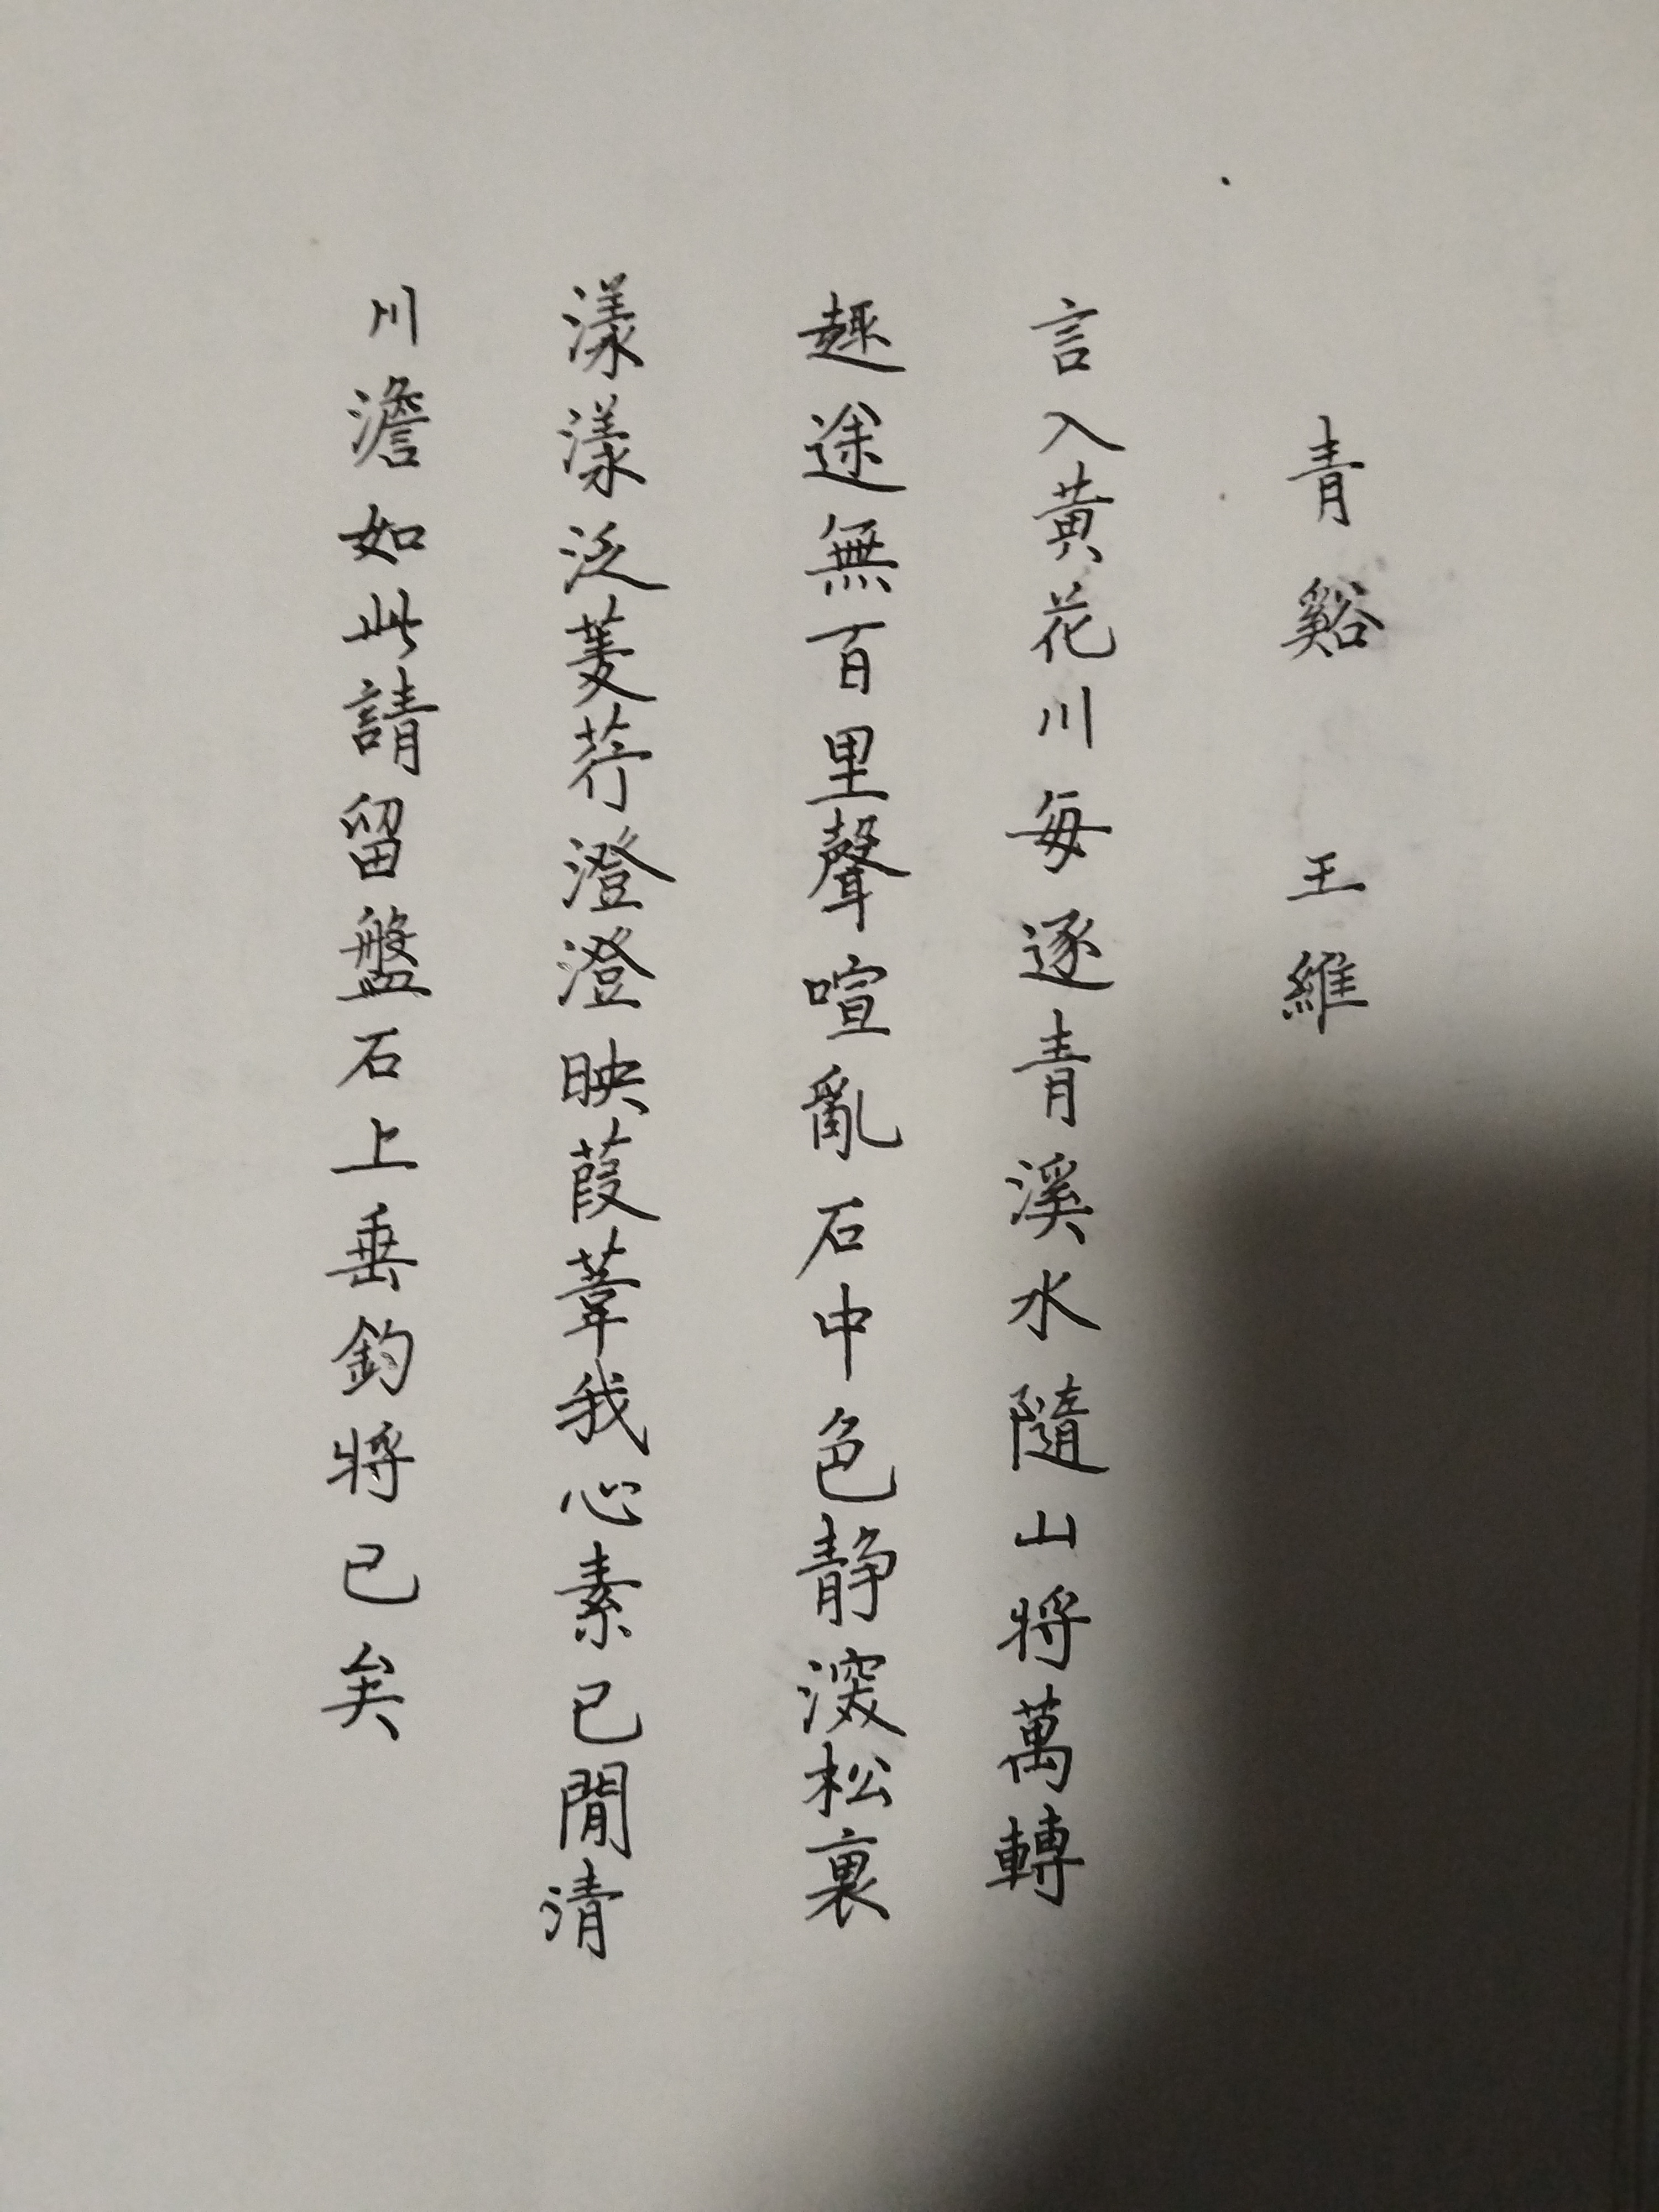 青谿 王維
言入黄花川每逐青溪水隨山將萬轉
趣途無百里聲喧亂石中色靜深松裏
漾漾泛菱荇澄澄映葭葦我心素已閒清
川澹如此請留盤石上垂釣將已矣